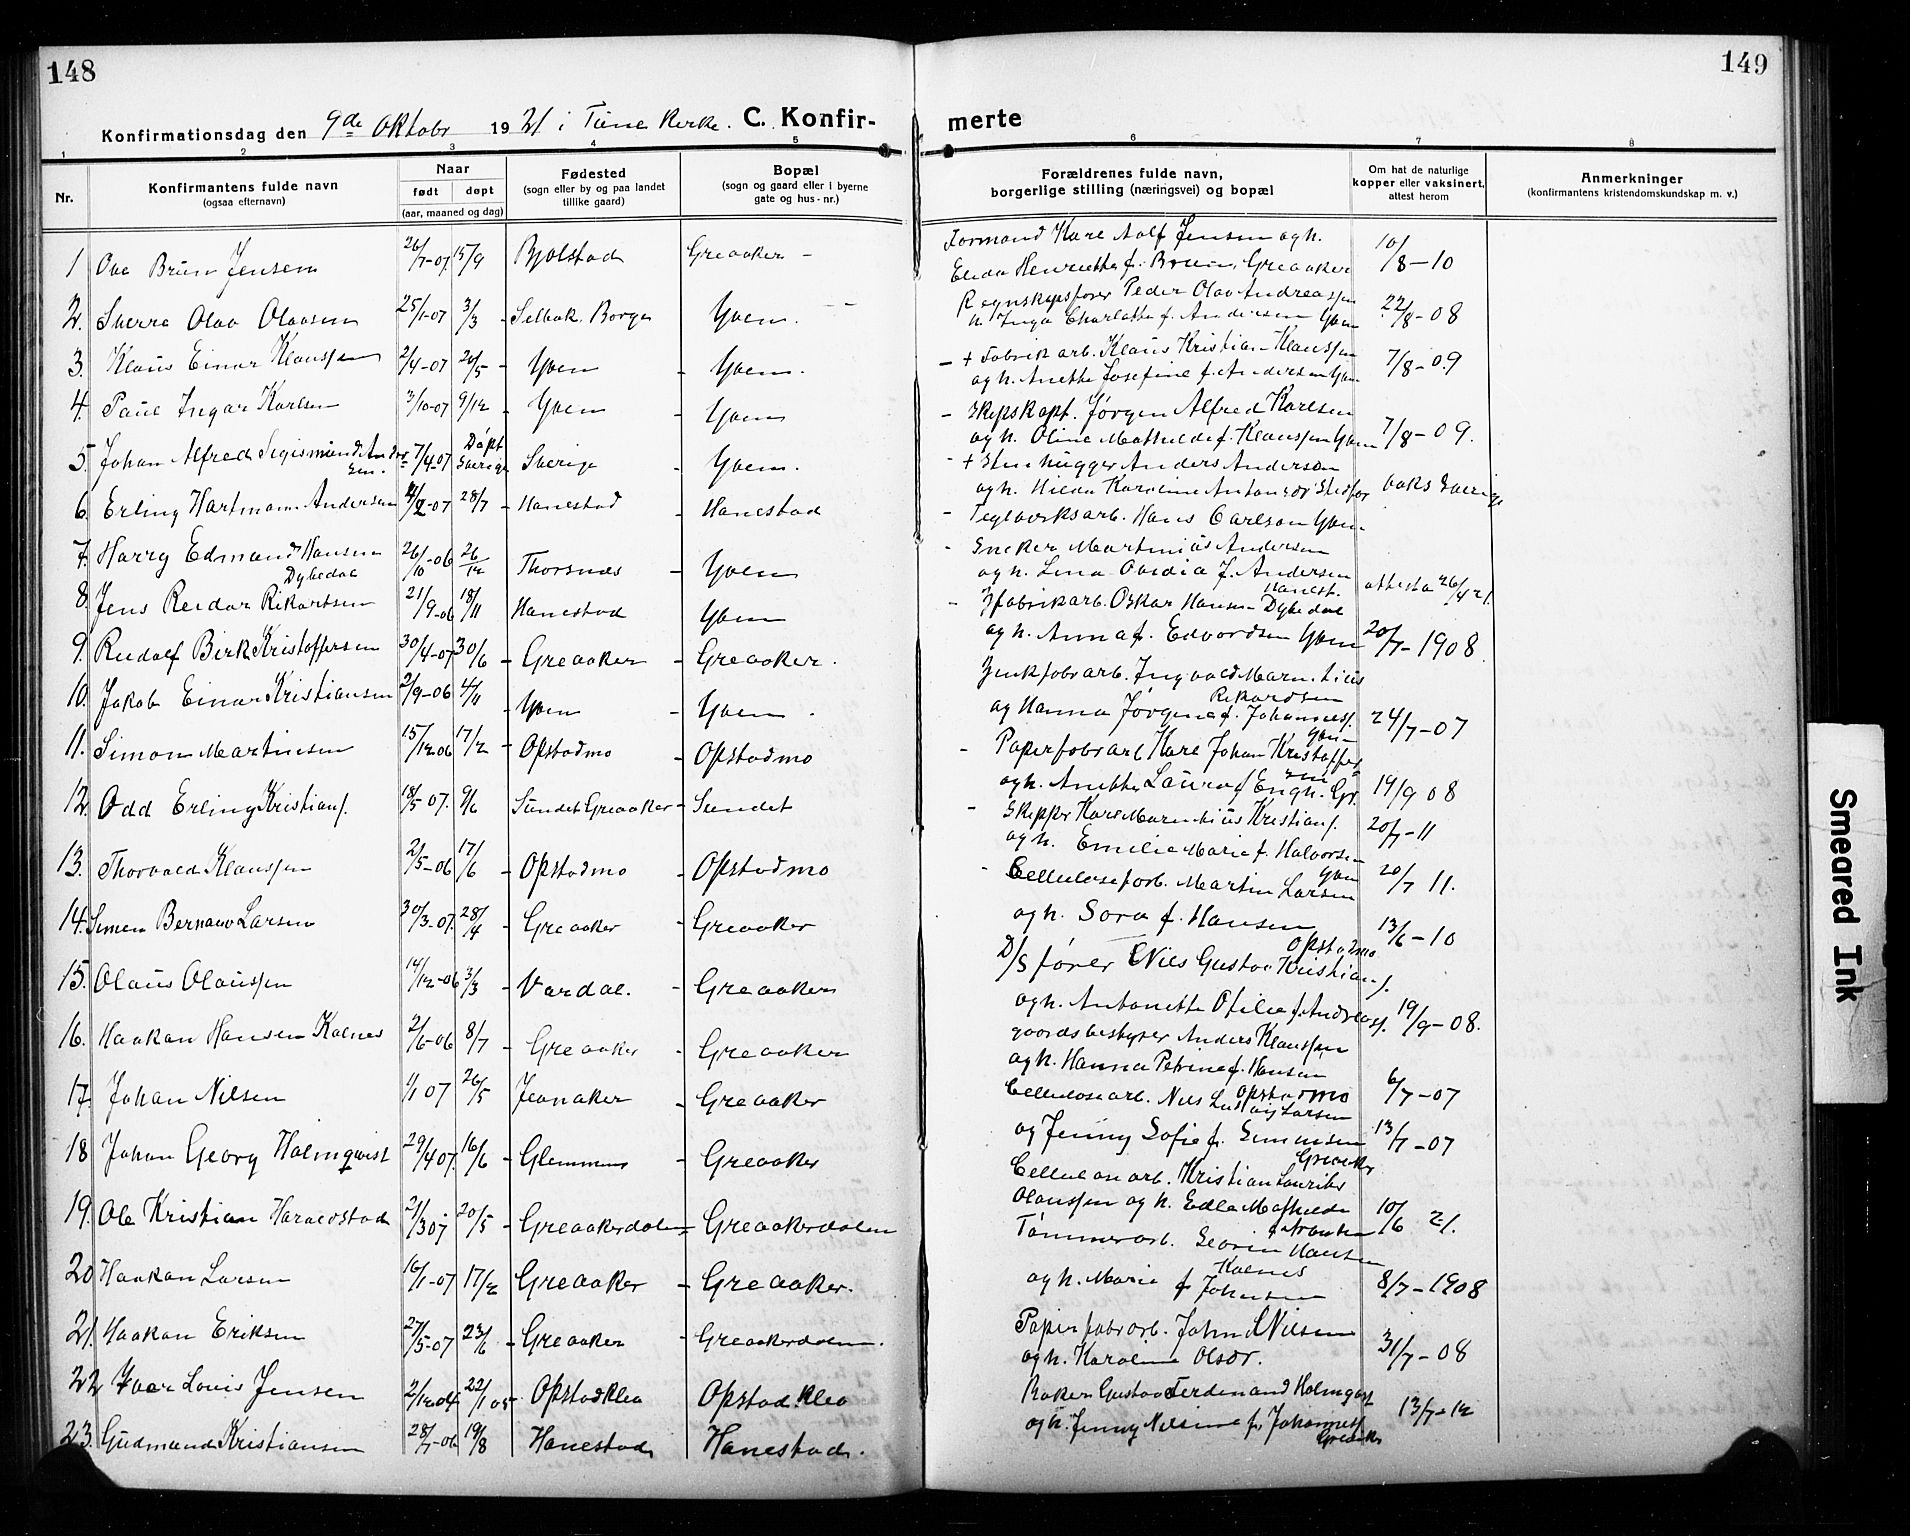 148
Konfirmationsdag den 9de Oktobr 1921 i Tune Kirke. C. Konfir-
1 2 3 4 5
Nr. Konfirmantens fulde navn (ogsaa efternavn)
Naar
født døpt
(aar, maaned og dag)
Fødested
(sogn eller by og paa landet
tillike gaard)
Bopæl
(sogn og gaard eller i byerne
gate og hus-nr.)
1 Ove Brun Jensen 26/7-07 15/9 Bjølstad Greaaker -
2. Sverre Olav Olavsen 25/1-07 3/3 - Selbak. Borge Yven. -
3. Klaus Einar Klaussen 2/4-07 20/5 - Yven - Yven.
4. Paul Ingar Karlsen 3/10-07 9/12 - Yven - Yven.
5. Johan Alfred Sigismund Ander-
sen. 7/4-07 Døpt Sverige - Sverige - Yven.
6. Erling Hartmann Andersen 4/2-07 28/7 - Hanestad - Hanestad
7. Harry Edmand Hansen
Dybedal 26/10-06 26/12 Thorsnes - Yven
8. Jens Reidar Rikartsen 21/9-06 18/11 Hanestad Yven
9. Rudolf Birk Kristoffersen 30/4-07 30/6 - Greaaker - Greaaker.
10. Jakob Einar Kristiansen 2/9-06 4/11 - Yven - Yven.
11. Simon Martinsen 15/12 06 17/2 - Opstadmo - Opstadmo
12. Odd Erling Kristians. 18/5-07. 9/6 - Sundet Greaaker - Sundet
13. Thorvald Klaussen 2/5-06 17/6 - Opstadmo - Opstadmo
14. Simen Bernard Larsen 30/3-07. 28/4 - Greaaker - Greaaker
15. Olaus Olaussen 14/12-06 3/3 - Vardal. - Greaaker
16. Haakon Hansen Kalnes 2/6-06 8/7 - Greaaker - Greaaker
17. Johan Nilsen 1/1 07 26/5 Jeanaker - Greaaker
18 Johan Georg Holmqvist 29/4 07. 16/6 - Glemmen - Greaaker
19. Ole Kristian Haraldstad 21/3 07 20/5 - Greaakerdalen - Greaakerdalen
20 Haakon Larsen 16/1-07 17/2 Greaaker - Greaaker.
21. Haakon Eriksen 27/5-07 23/6 - Greaaker - Greaakerdalen.
22 Ivar Louis Jensen 2/12 04 22/1 05 Opstadklev Opstadklev
23. Gudmund Kristiansen 28/7-06 19/8 - Hanestad Hanestad.
149
merte
6 7 8
Forældrenes fulde navn,
borgerlige stilling (næringsvei) og bopæl
Om hat de naturlige
kopper eller vaksinert,
attest herom
Anmerkninger
(konfirmantens kristendomskundskap m. v.)
Formand Karl Adolf Jensen og h.
Elida Henriette f. Bruun, Greaaker 10/8-10
Regnskapsfører Peder Olav Andreassen
h. Inga Charlotte f. Andersen Yven 22/8-08
- + Fabrikarb. Klaus Kristian Klaussen
og h. Anette Josefine f. Andersen Yven 7/8-09
- Skipskapt. Jørgen Alfred Karlsen
og h. Oline Mathilde f. Klaussen Yven 7/8-09.
- + Stenhugger Anders Andersen
og h. Hilda Karoline Antonsdr. vaks Sverige
- Teglverksarb. Hans Carlson Yven
- Sneker Martinius Andersen
og h. Lina Ovidia f. Andersen
Hanest. attest a 26/4 21.
- Zfabrikarb. Oskar Hansen Dybedal
og h. Anna f. Edvardsen Yven 20/7-1908.
Zinkfabrarb. Ingvald Marentius
Rikardsen
og Hanna Jørgine f. Johanness.
Yven 24/7-07
- Papirfabrarb Karl Johan Kristoffer
sen
og h. Anette Laura f Engh. Gr. 19/9 08
- Skipper Karl Marentius Kristians. 20/7-11
og h. Emilie Marie f. Halvorsen
Yven
- Cellulosefarb. Martin Larsen 20/7 11.
og h. Sara f. Hansen
Opstadmo 13/6-10
D/S fører Nils Gustav Kristians.
og h. Antonette Otilie f. Andreass. 19/9-08.
gaardsbestyrer Anders Klaussen
og h. Hanna Petrine f. Hansen
Opstadmo 6/7-07
Cellulosearb. Nils Ludvig Larsen
og Jenny Sofie f. Simensen 13/7-07
Greaaker
Cellulosearb. Kristian Lauritz
Olaussen og h. Edla Mathilde
f. Frantzen 10/6 21.
Tømmerarb. Georg Hansen
Kalnes
og h. Marie f Johansen 8/7-1908
Papirfabrarb. Johan Nilsen
og h. Karoline Olsdr. 31/7-08
Baker Gustav Ferdinand Holmqvist
og h. Jenny Nilsine f. Johanness. 13/7-12
Greaaker
Smeared Ink